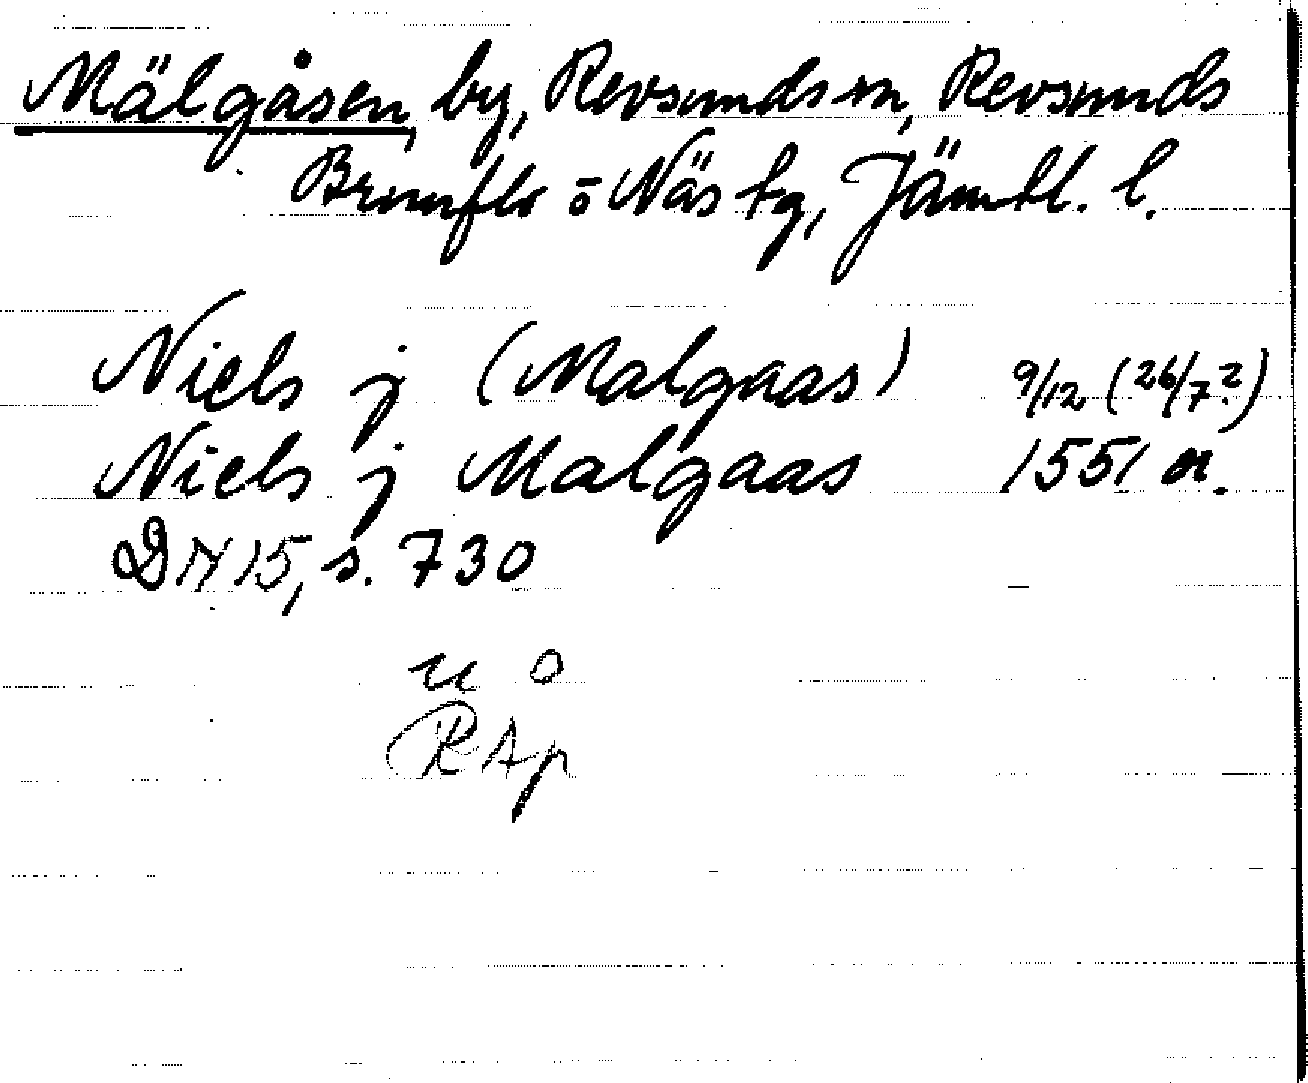 Mälgåsen, by, Revsunds sn, Revsunds
Brunflo o Näs tg, Jämtl. l.
Niels j (Malgaas) 9/12 (26/7?)
Niels j Malgaas 1551 or.
DN 15, s. 730
u o
RAp